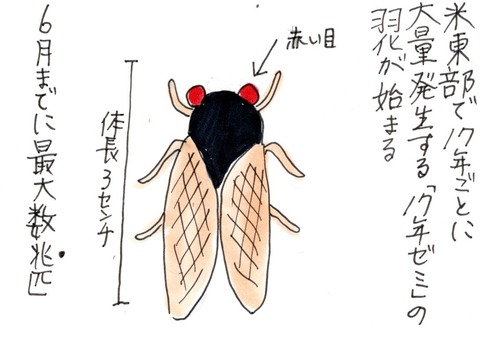 米東部で17年ごとに
大量発生する「17年ゼミ」の
羽化が始まる
赤い目
体長3センチ
6月までに最大数兆匹